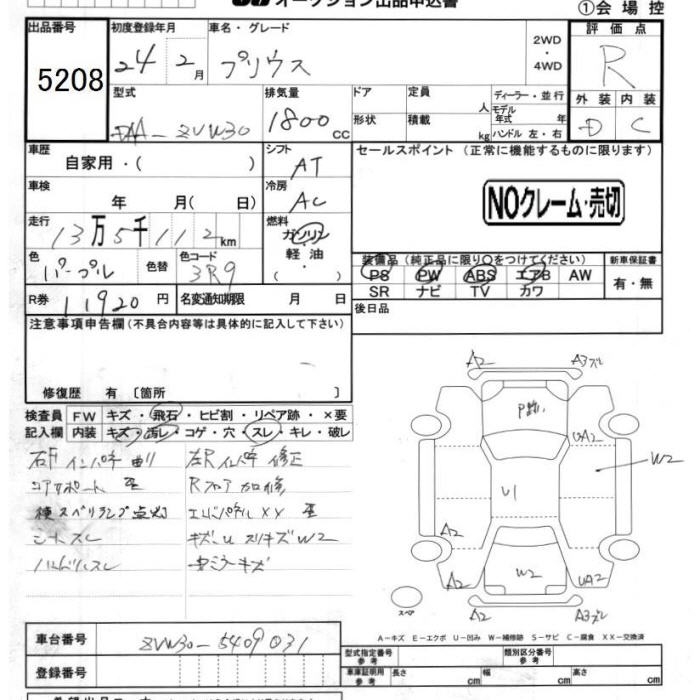 オークション出品申込書
①会場控
出品番号
5208
初度登録年月
24 2月
車名・グレード
プリウス
2WD
・
4WD
評価点
R
型式
DAA-ZVW30
排気量
1800 CC
ドア
形状
定員 人
積載 kg
ディーラー・並行
モデル年式 年
ハンドル 左・右
外装 内装
D C
車歴
自家用・( )
シフト
AT
セールスポイント (正常に機能するものに限ります)
車検
年 月( 日)
冷房
AC
NOクレーム・売切
走行
13万5千112km
燃料
ガソリン
軽油
( )
色
パープル
色替
色コード
3R9
装備品 (純正品に限り○をつけてください)
PS PW ABS エアB AW
SR ナビ TV カワ
新車保証書
有・無
R券 11920円
名変通知期限 月 日
後日品
注意事項申告欄(不具合内容等は具体的に記入して下さい)
修復歴 有〔箇所 〕
検査員 FW キズ・飛石・ヒビ割・リペア跡・×要
記入欄 内装 キズ・汚レ・コゲ・穴・スレ・キレ・破レ
右F インパネ 曲り
左R インパネ 修正
コアサポート
Rフロア
横スベリランプ点灯
エンドパネル XX
シートスレ
W2
ハンドルスレ
ミラーキズ
A2 A3
UA2
W2
U1
A2
W2
A2 UA2
A2 A3
スペア
A-キズ E-エクボ U-凹み W-補修跡 S-サビ C-腐食 XX-交換済
車台番号
ZVW30-5409031
登録番号
型式指定番号
参考
類別区分番号
参考
車庫証明用
参考
長さ 幅 高さ
cm cm cm